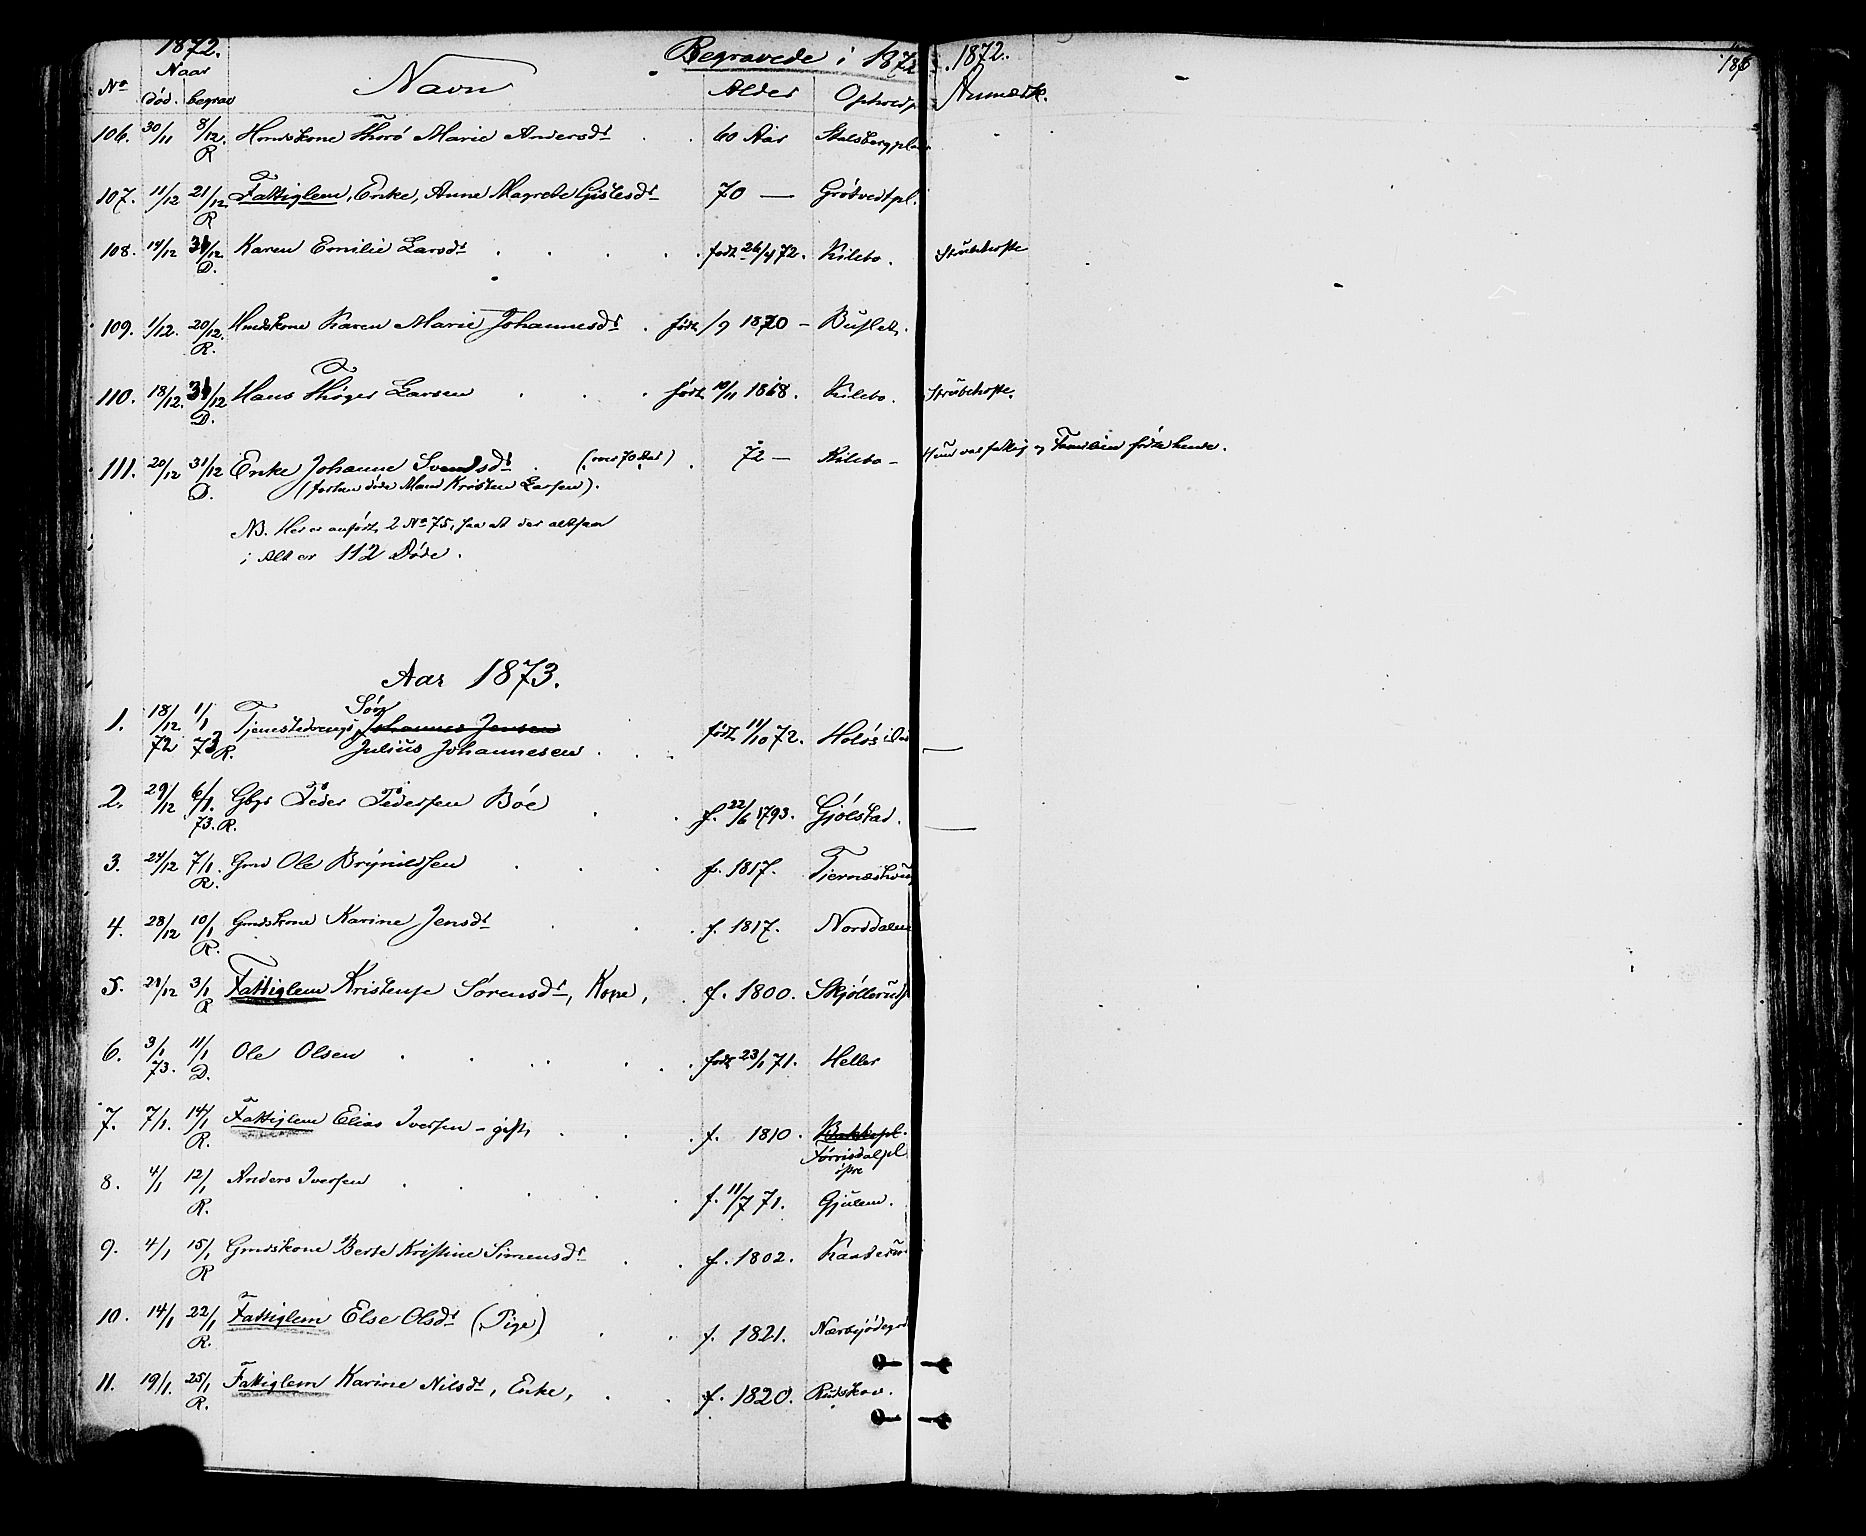 1872. Begravede i 1872. 1872. 186
No Naar død. begrav Navn Alder Opholds Anmærk.
106. 30/11 8/12. R Hmdskone Thorø Marie Andersdt 60 Aar Stalsbergpl
107. 11/12 21/12 R Fattiglem, Enke, Anne Magrete Gislesdt 70 — Grøtvedtpl.
108. 14/12 31/12 D. Karen Emilie Larsdt født 26/4 72. Kilebo. Strübehoste
109. 1/12. 20/12. R. Hmdskone Karen Marie Johannesdt født /9 1820 –
110. 18/12. 31/12 D. Hans Thøger Larsen født 10/11 1868. Kilebo. Strübehoste.
111. 20/12 31/12 D. Enke Johanne Svendsdt (over 70 Aar) 72 — Kilebo – Hün var fattig og Familien fødte hende.
(forhen døde Mand Kristen Larsen).
NB. Her er anført 2 No 75, saa at der altsaa
i Alt er 112 Døde.
Aar 1873.
1. 18/12 72 1/1 73 R. Tjenestedrengs Søn Johannes Jensen født 11/10 72. Holøs i
Julius Johannesen
2. 29/12 6/1. 73. R. Gbgr Peder Pedersen Bøe f. 22/6 1793. Gjølstad.
3. 24/12 7/1. R. Gmd Ole Brynildsen f. 1817.
4. 28/12 10/1 R. Gmdskone Karine Jensdt f. 1817. Norddalen
5. 28/12 3/1 R Fattiglem Kristense Sørensdt, Kone, f. 1800. Skjøllerüd
6. 3/1 73. 11/1 D. Ole Olsen født 23/1 71. Heller
7. 7/1. 14/1 R. Fattiglem Elias Iversen – gift, f. 1810. Bakkepl.
Førrisdalpl
østre
8. 4/1 12/1 R. Anders Iversen f. 11/7 71. Gjülem.
9. 4/1 15/1 R Gmdskone Berte Kristine Simensdt f. 1802.
10. 14/1 22/1 R. Fattiglem Else Olsdt (Pige) f. 1821.
11. 19/1. 25/1 R. Fattiglem Karine Nilsdt, Enke, f. 1820. Rüdskov.